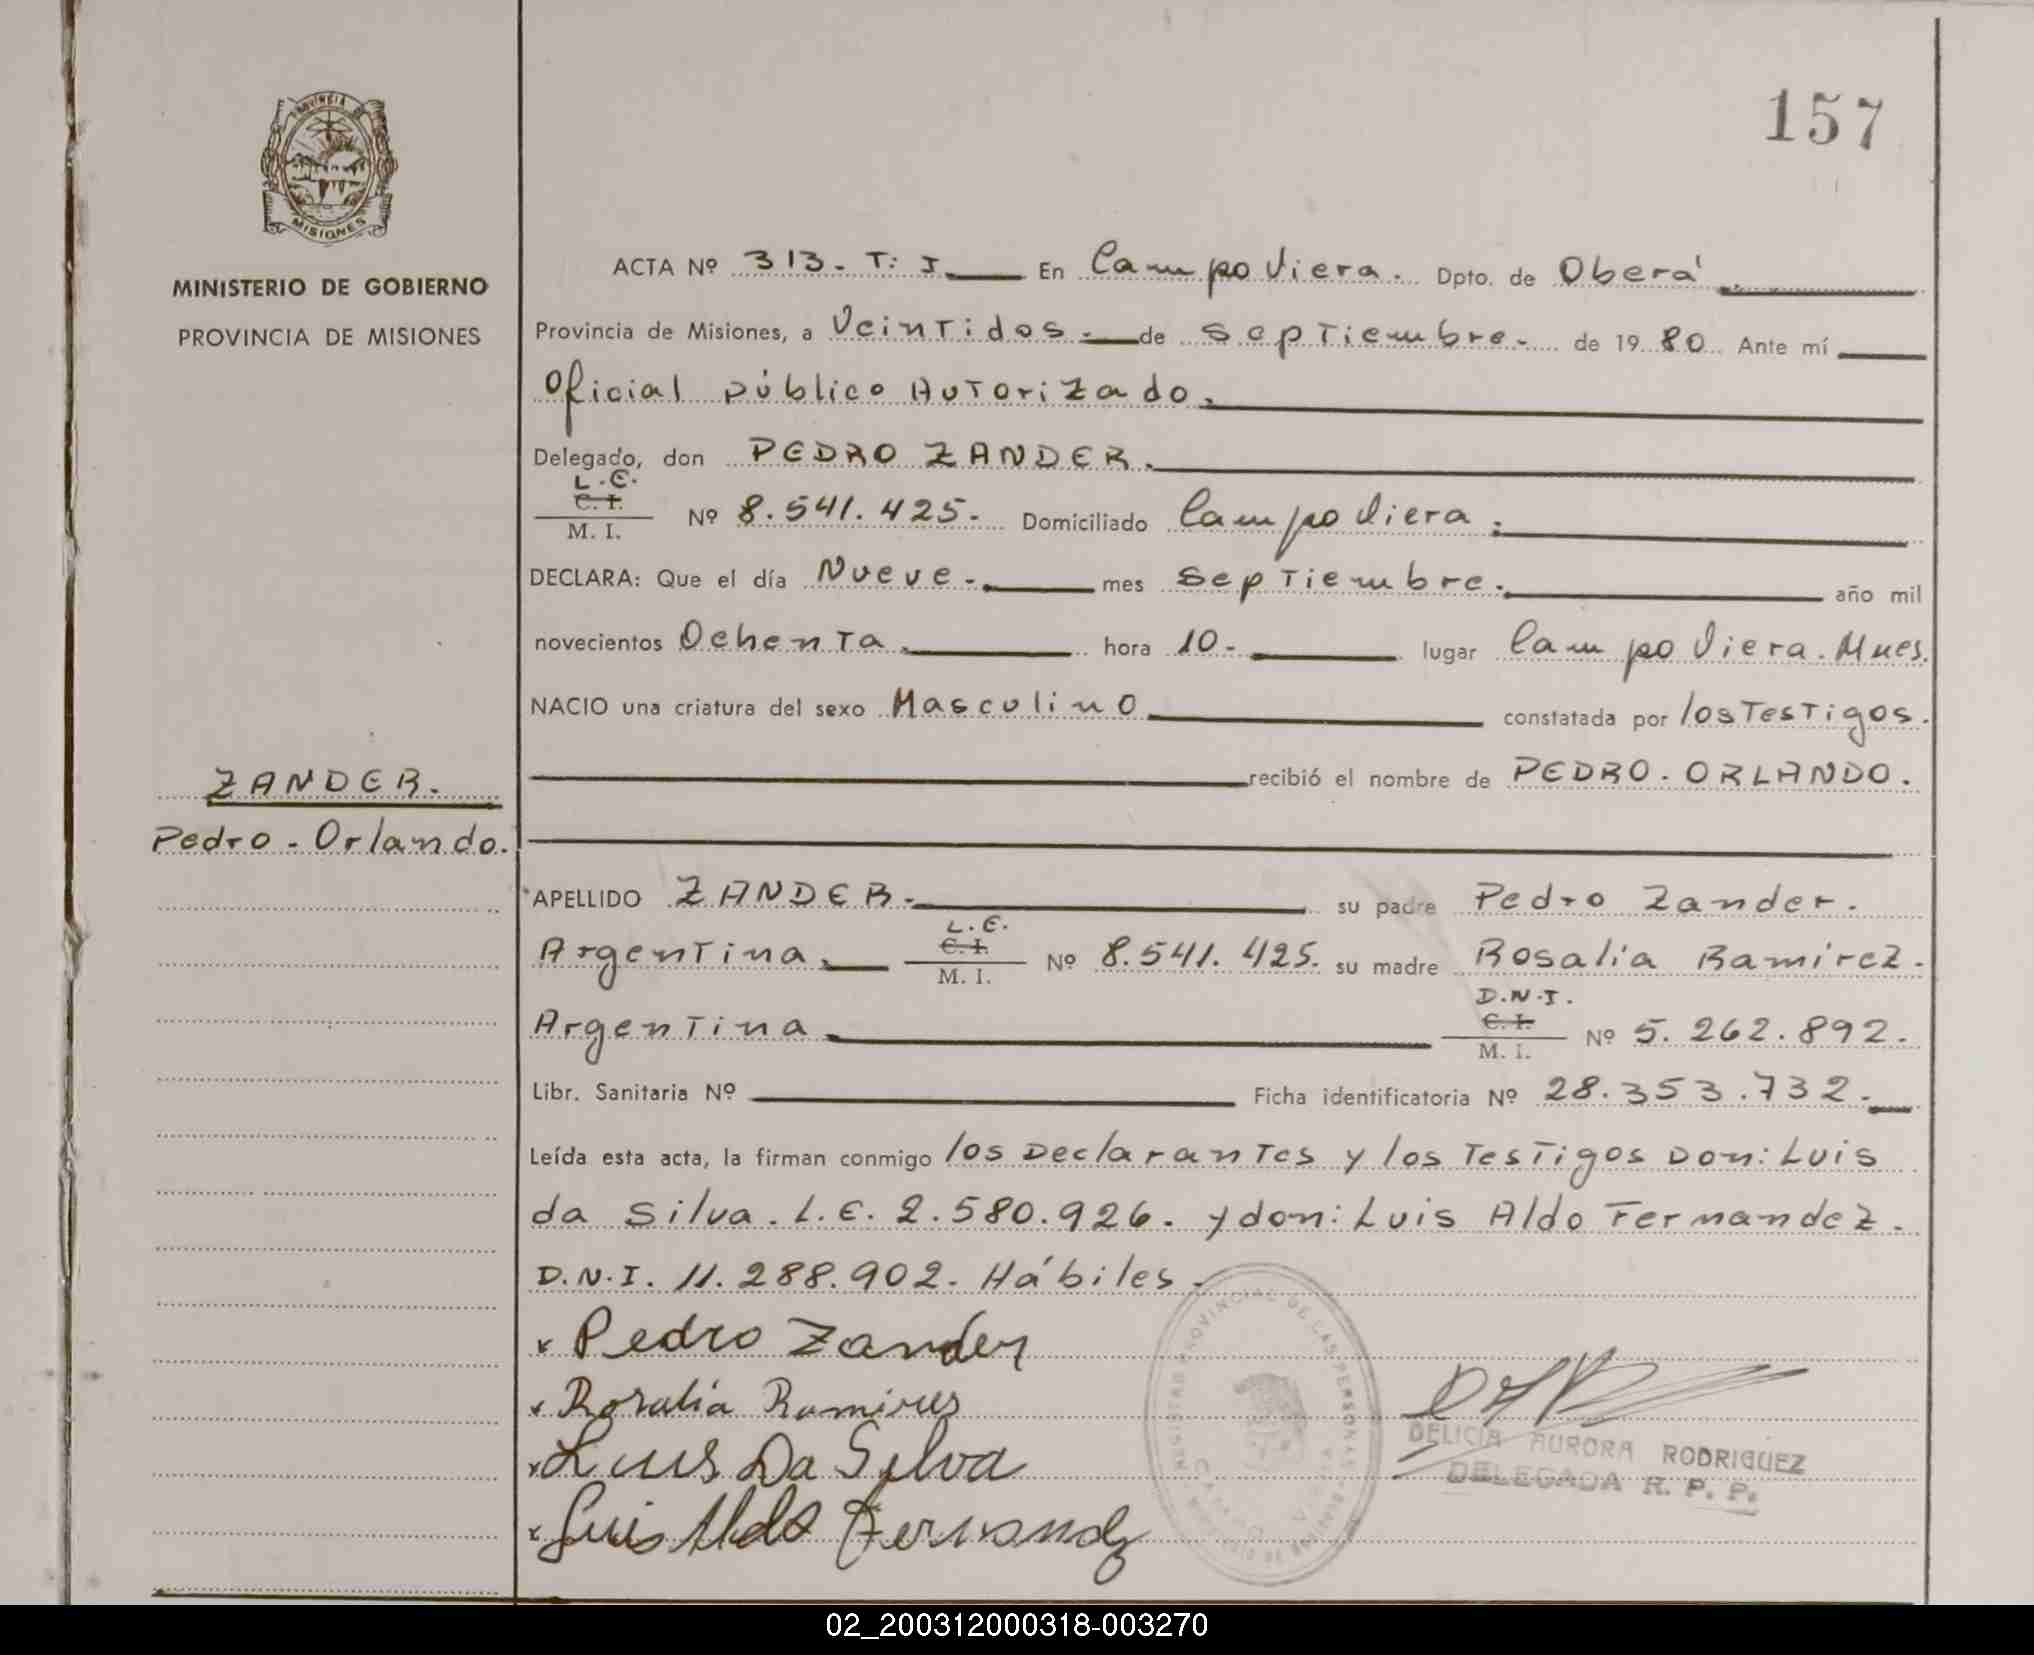 157
PROVINCIA DE
MISIONES
MINISTERIO DE GOBIERNO
PROVINCIA DE MISIONES
ACTA Nº 313. T: I. En Campo Viera. Dpto. de Oberá.
Provincia de Misiones, a Veintidos. de Septiembre. de 1980 Ante mí
Oficial Público Autorizado.
Delegado, don PEDRO ZANDER.
L.E.
C. I.
M. I. Nº 8.541.425. Domiciliado Campo Viera.
DECLARA: Que el día Nueve. mes Septiembre. año mil
novecientos Ochenta. hora 10. lugar Campo Viera. Mnes.
NACIO una criatura del sexo Masculino constatada por los Testigos.
recibió el nombre de PEDRO. ORLANDO.
ZANDER.
Pedro. Orlando.
APELLIDO ZANDER. su padre Pedro Zander.
L.E.
C. I.
Argentina. M. I. Nº 8.541.425. su madre Rosalia Ramirez.
D.N.I.
C. I.
Argentina. M. I. Nº 5.262.892.
Libr. Sanitaria Nº Ficha identificatoria Nº 28.353.732.
Leída esta acta, la firman conmigo los Declarantes y los Testigos Don: Luis
da Silva. L.E. 2.580.926. y don: Luis Aldo Fernandez.
D.N.I. 11.288.902. Hábiles.
x Pedro Zander
x Rosalia Ramires
x Luis Da Silva
x Luis Aldo Fernandez
REGISTRO PROVINCIAL DE LAS PERSONAS
DELICIA AURORA RODRIGUEZ
DELEGADA R. P. P.
02_200312000318-003270